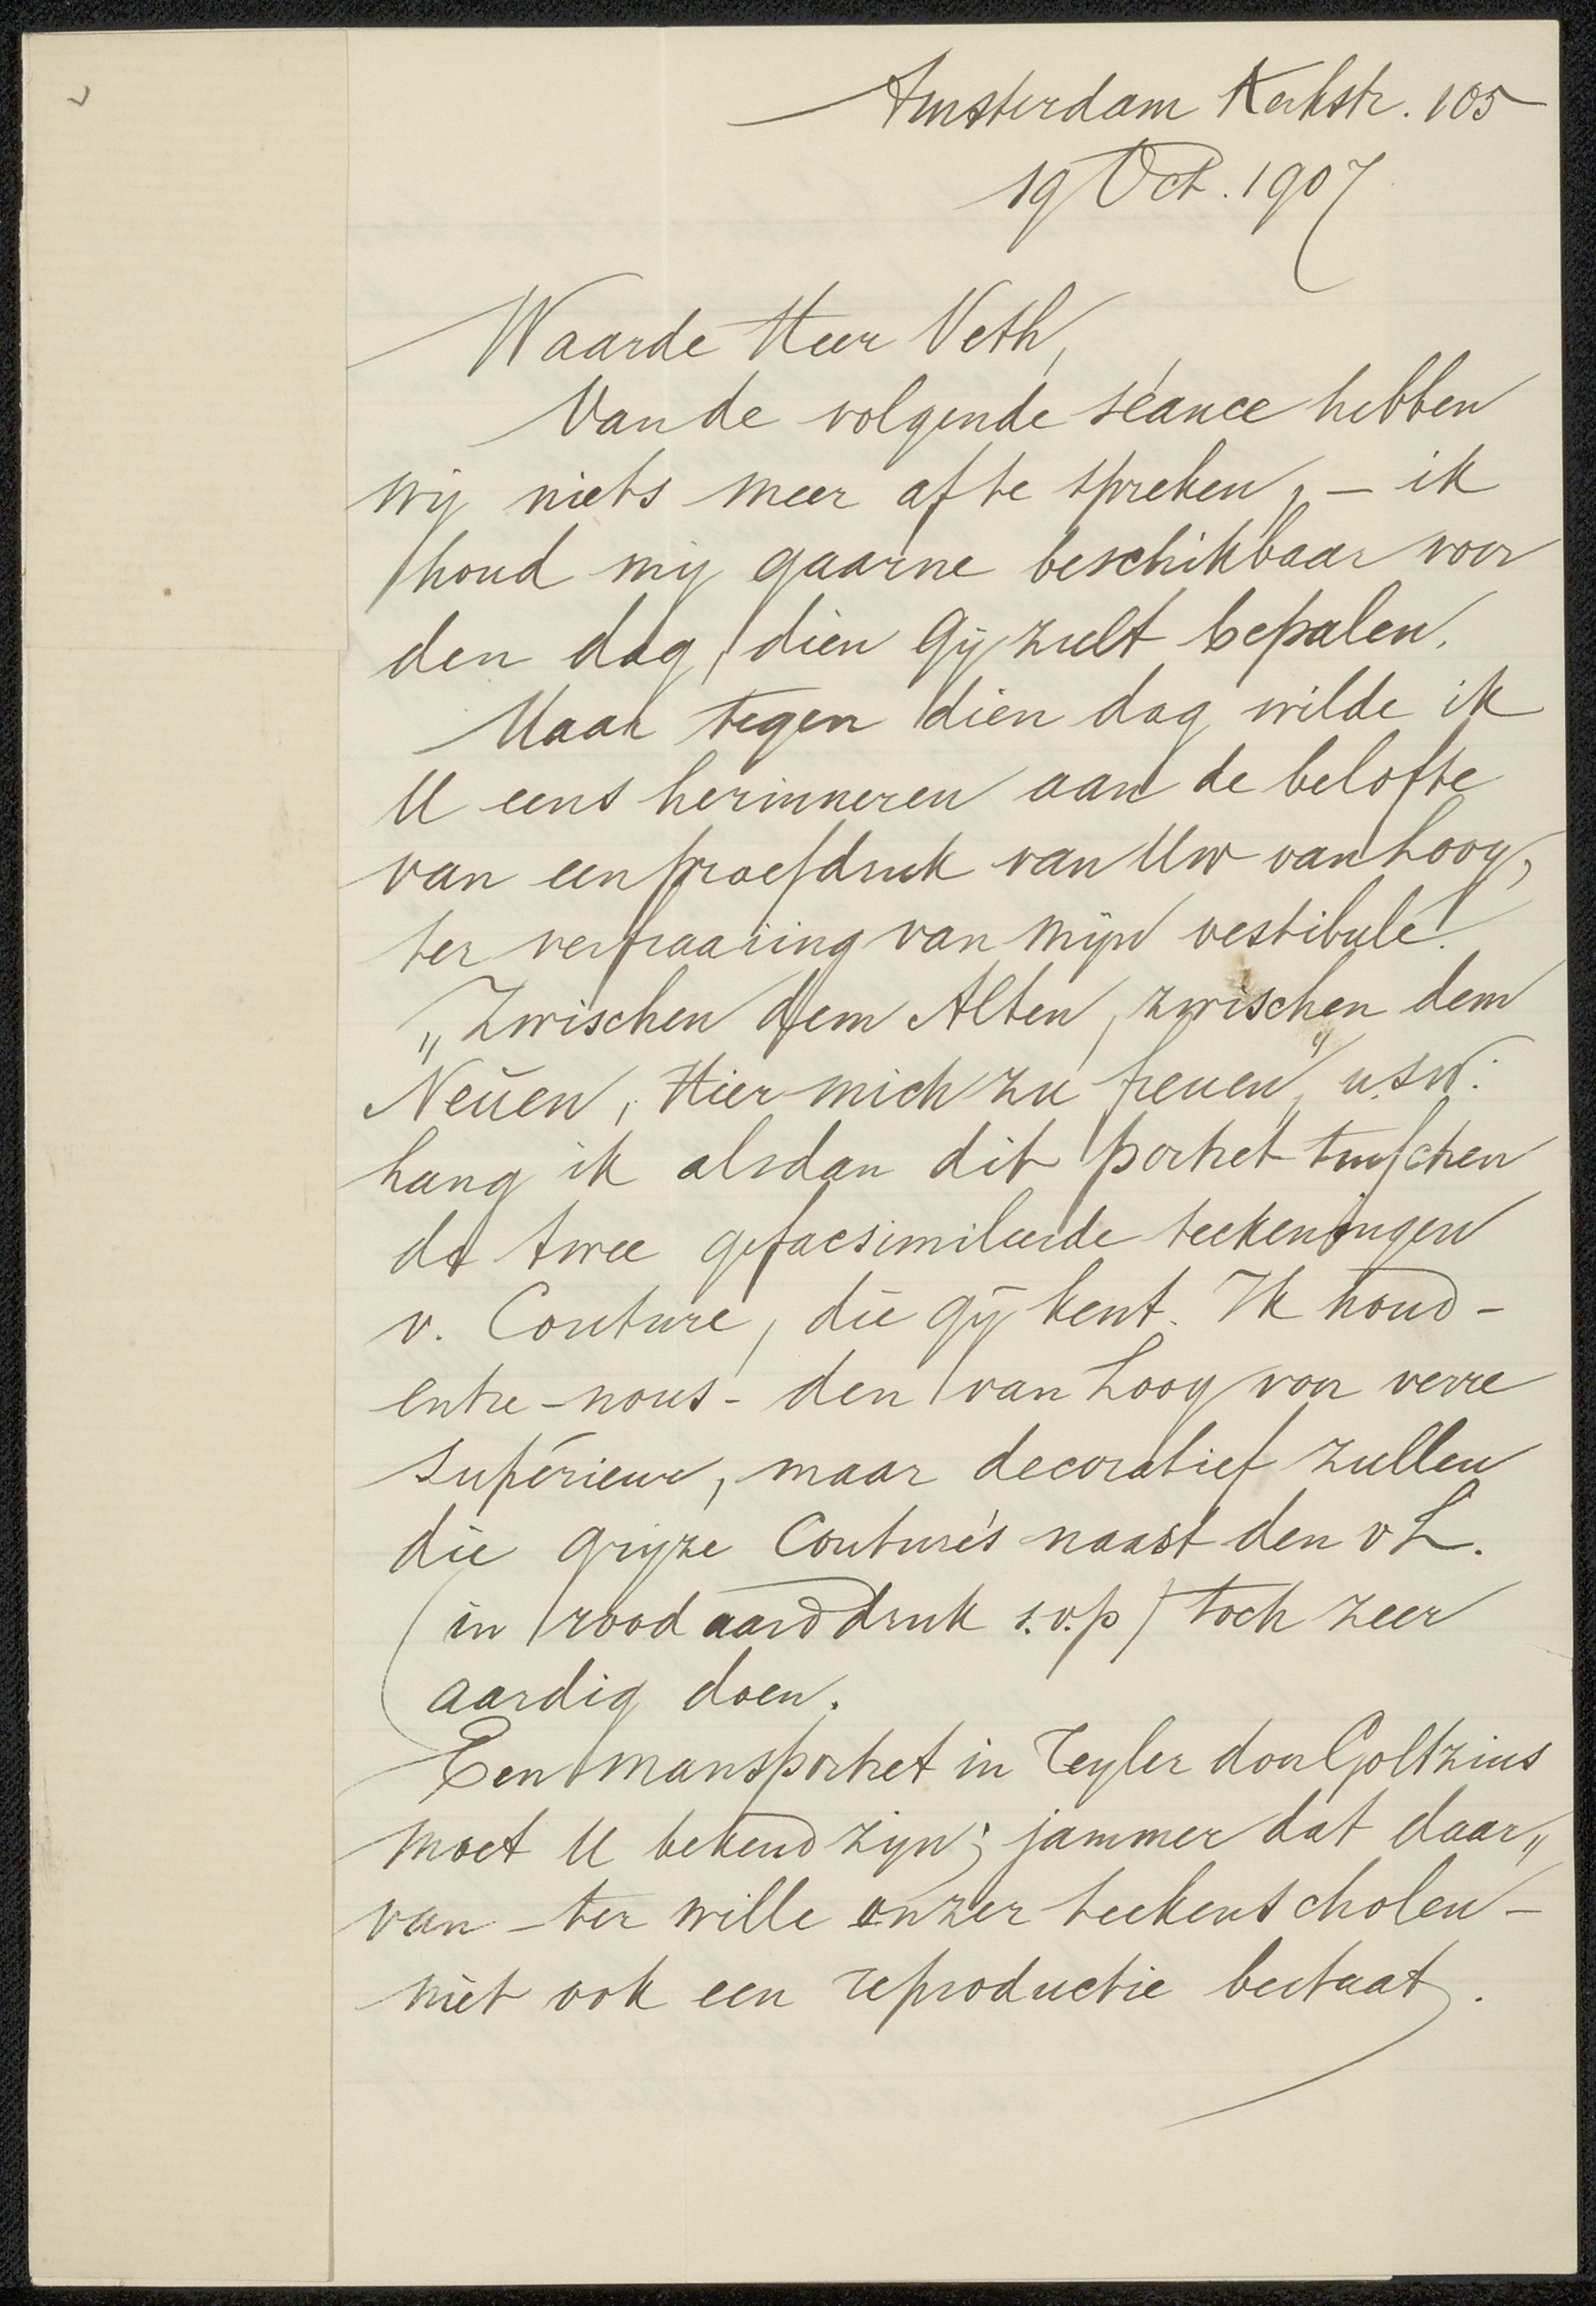 Amsterdam Kerkstr. 105
19 Oct. 1907
Waarde Heer Veth,
Van de volgende séance hebben
wij niets meer af te spreken, – ik
houd mij gaarne beschikbaar voor
den dag, dien Gij zult bepalen.
Maar tegen dien dag wilde ik
U eens herinneren aan de belofte
van een proefdruk van Uw van Looy,
ter verfraaiing van mijn vestibule.
„Zwischen dem Alten, zwischen dem
Neuen, Hier mich zu freuen", u.s.w.
hang ik alsdan dit portret tusschen
de twee gefacsimileerde teekeningen
v. Couture, die gij kent. Ik houd -
entre-nous - den van Looy voor verre
supérieur, maar decoratief zullen
die grijze Couture's naast den v L.
(in rood aarddruk s.v.p) toch zeer
aardig doen.
Een mansportret in Teyler door Goltzius
moet U bekend zijn; jammer dat daar„
van - ter wille onzer teekenscholen -
niet ook een reproductie bestaat.